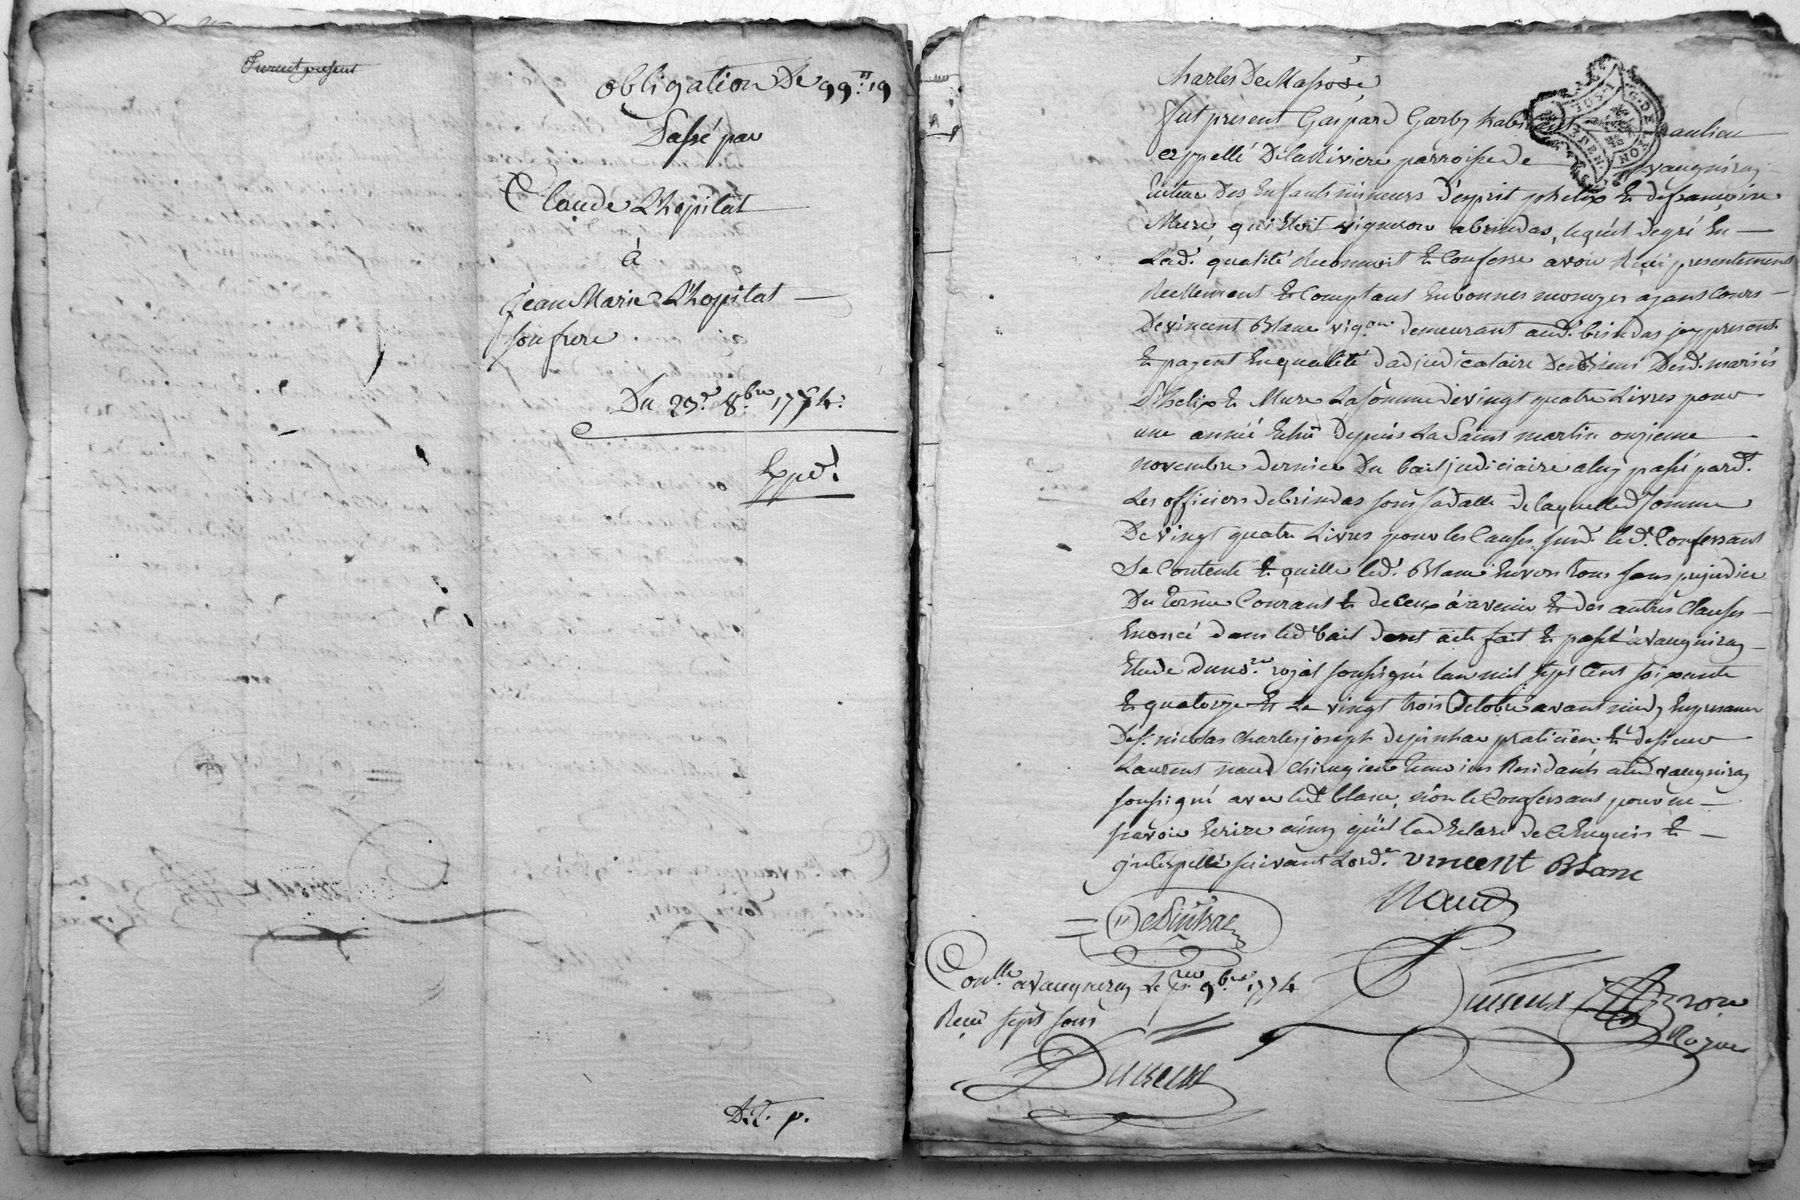 Furent present
obligation De 99.tt 19
Passé par
Claude L'hopital
à
Jean Marie L'hopital
son frere
Du 23.e 8.bre 1774.
Exped.
D.T. p.
Charles De
fut présent Gaspard Garby habitant
appellé De la Riviere parroisse de vaugneray
tuteur Des Enfants mineurs d'esprit phelix Et de francoise
Mure, qui Etoit vigneron a brindas, lequel de gré En
Lad. qualité Reconnoit Et Confesse avoir Reçu presentement
Reellement Et Comptant En bonnes monoyes ayant Cours
De vincent Blanc vigon. demeurant aud. brindas icy present
Et payant En qualité d'adjudicataire Des Biens Desd. mariés
Phelix Et Mure La somme de vingt quatre Livres pour
une année Echue Depuis La Saint martin onzieme
novembre dernier Du bail judiciaire a luy passé par
Les officiers de brindas sous sa datte De laquelle d. somme
De vingt quatre Livres pour les Causes susd. led. Confessant
Se Contente Et quitte led. Blanc Envers tous sans prejudice
Du terme Courant Et de Ceux à avenir Et des autres Clauses
Enoncé dans led. bail dont acte fait Et passé à vaugneray
Etude du nore. royal soussigné l'an mil sept Cent soixante
Et quatorze Et Le vingt trois Octobre avant midy En presence
De sr. nicolas Charles joseph depinhac praticien Et de sieur
Laurent naud Chirugient temoins Residants aud. vaugneray
soussigné avec led. blanc, non le Confessant pour ne
savoir Ecrire ainsy qu'il l'a declaré de Ce Enquis Et
interpellé suivant L'ord.e vincent Blanc
Naud
Depinhac
Conlle. a vaugneray Le 9.bre 1774
Reçu sept sous